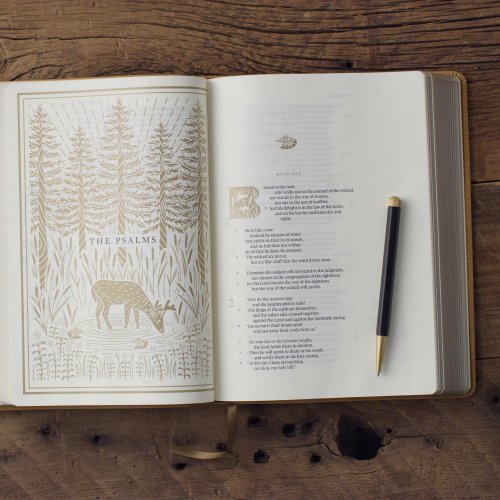 THE PSALMS
BOOK ONE
Blessed is the man
who walks not in the counsel of the wicked,
nor stands in the way of sinners,
nor sits in the seat of scoffers;
but his delight is in the law of the LORD,
and on his law he meditates day and
night.
He is like a tree
planted by streams of water
that yields its fruit in its season,
and its leaf does not wither.
In all that he does, he prospers.
The wicked are not so,
but are like chaff that the wind drives away.
Therefore the wicked will not stand in the judgment,
nor sinners in the congregation of the righteous;
for the LORD knows the way of the righteous,
but the way of the wicked will perish.
2
Why do the nations rage
and the peoples plot in vain?
The kings of the earth set themselves,
and the rulers take counsel together,
against the LORD and against his Anointed, saying,
"Let us burst their bonds apart
and cast away their cords from us."
He who sits in the heavens laughs;
the Lord holds them in derision.
Then he will speak to them in his wrath,
and terrify them in his fury, saying,
"As for me, I have set my King
on Zion, my holy hill."